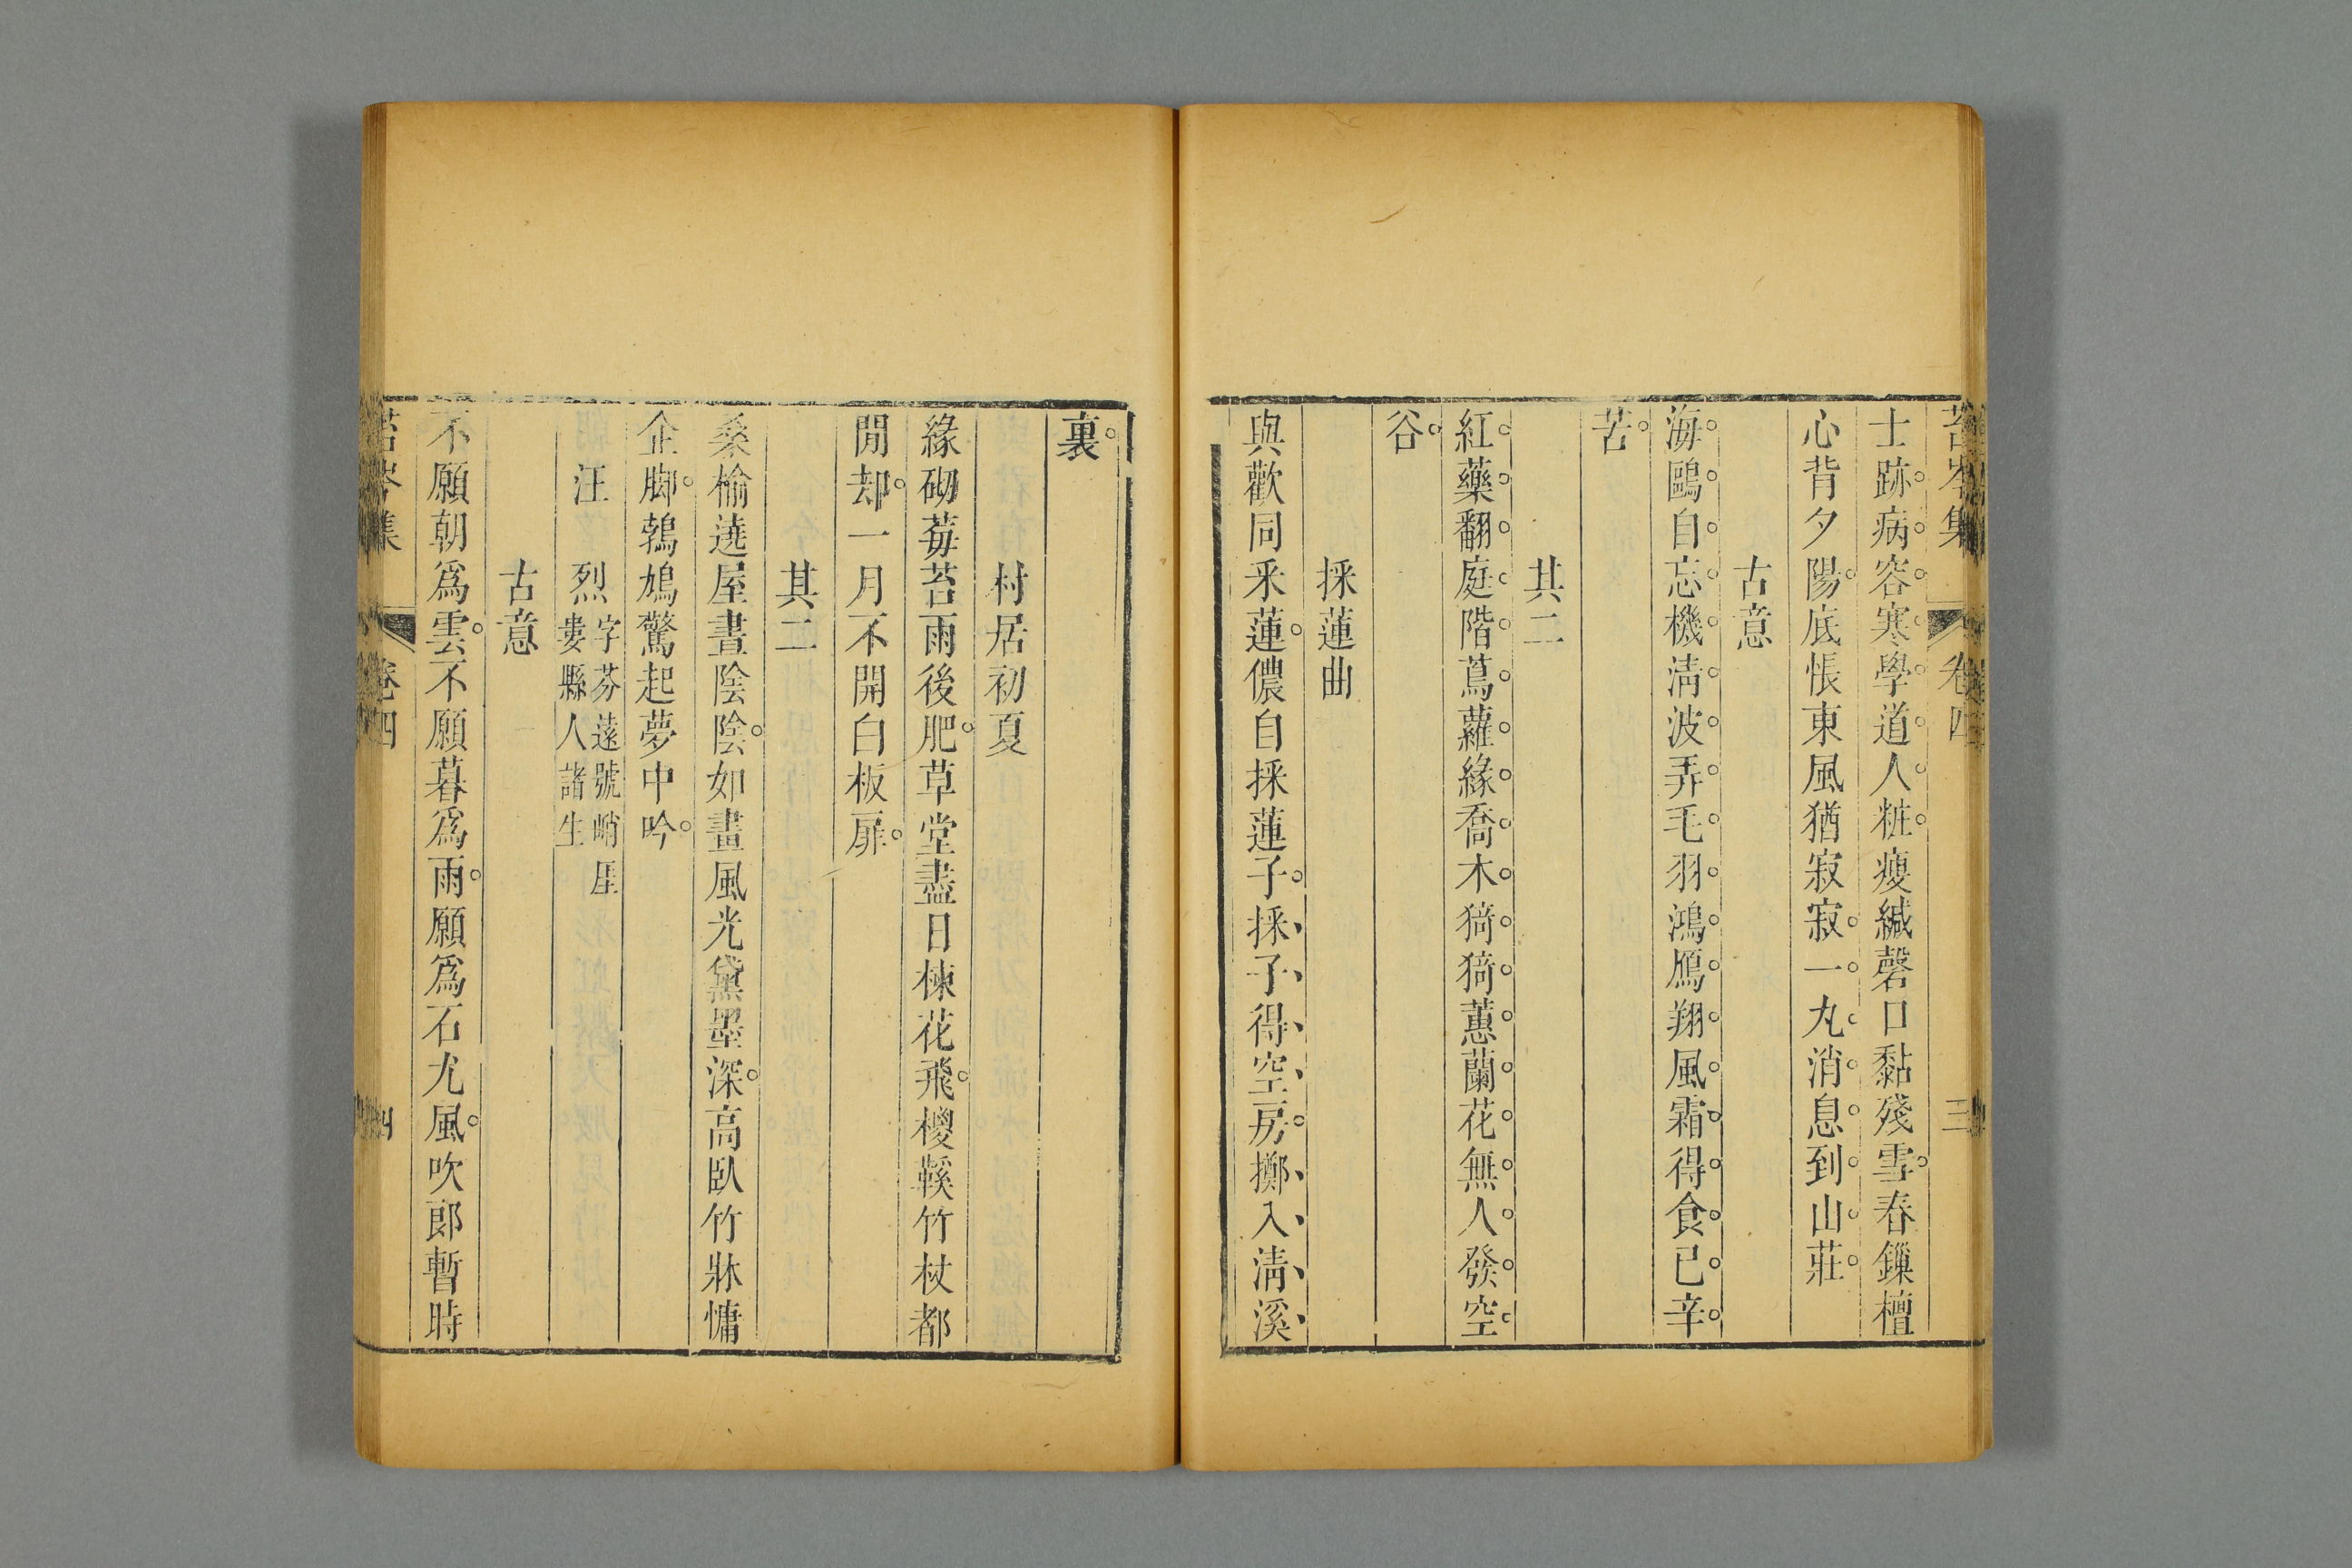 苔岑集 卷四 三
士跡病容寒學道人粧瘦緘磬口黏殘雪春鏁檀
心背夕陽底悵東風猶寂寂一丸消息到山莊
古意
海鷗自忘機清波弄毛羽鴻鴈翔風霜得食已辛
苦
其二
紅藥翻庭階蔦蘿緣喬木猗猗蕙蘭花無人發空
谷
採蓮曲
與歡同采蓮儂自採蓮子採子得空房擲入清溪
裏
村居初夏
緣砌莓苔雨後肥草堂盡日楝花飛椶鞵竹杖都
閒却一月不開白板扉
其二
桑榆遶屋晝陰陰如畫風光黛墨深高臥竹牀慵
企脚鶉鳩驚起夢中吟
汪烈字芬遠號峭厓
婁縣人諸生
古意
不願朝爲雲不願暮爲雨願爲石尤風吹郎暫時
苔岑集 卷四 四